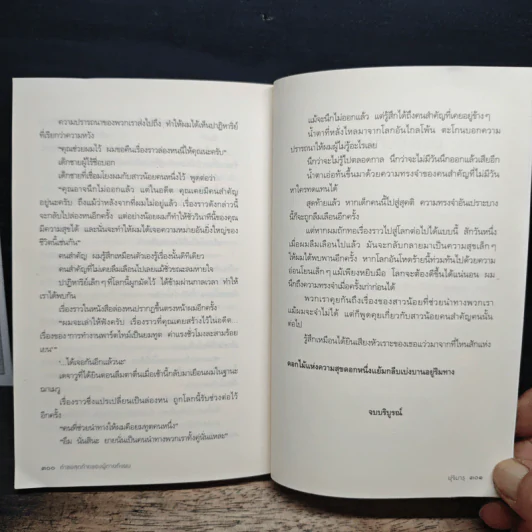 ความปรารถนาของพวกเราส่งไปถึง ทำให้ผมได้เห็นปาฏิหาริย์
ที่เรียกว่าความหวัง
"คุณช่วยผมไว้ ผมขอคืนเรื่องราวล่องหนนี้ให้คุณนะครับ"
เด็กชายผู้ไร้ชื่อบอก
เด็กชายที่เชื่อมโยงผมกับสาวน้อยคนหนึ่งไว้ พูดต่อว่า
"คุณอาจนึกไม่ออกแล้ว แต่ในอดีต คุณเคยมีคนสำคัญ
อยู่นะครับ ถึงแม้ว่าหลังจากที่ผมไม่อยู่แล้ว เรื่องราวดังกล่าวนี้จะ
กลับไปล่องหนอีกครั้ง แต่อย่างน้อยผมก็ทำให้ชั่ววินาทีนี้ของคุณ
มีความสุขได้ และนั่นจะทำให้ผมได้เจอความหมายอันยิ่งใหญ่ของ
ชีวิตนี้เช่นกัน"
คนสำคัญ ผมรู้สึกเหมือนตัวเองรู้เรื่องนั้นดีทีเดียว
คนสำคัญที่ไม่เคยลืมเลือนไปเลยแม้ชีวิตจะลมหายใจ
ปาฏิหาริย์เล็กๆ ที่โลกนี้ผูกมัดไว้ ได้ข้ามผ่านกาลเวลา ทำให้
เราได้พบกัน
เรื่องราวในหนังสือล่องหนปรากฏขึ้นตรงหน้าผมอีกครั้ง
"ผมจะเล่าให้ฟังครับ เรื่องราวที่คุณเคยสร้างไว้ในอดีต...
เรื่องของ 'การทำงานพาร์ตไทม์เป็นยมทูต ค่าแรงชั่วโมงละสามร้อย
เยน'"
"...ได้เจอกันอีกแล้วนะ"
เรื่องราวซึ่งแปรเปลี่ยนเป็นล่องหน ถูกโลกนี้รับช่วงต่อไว้
อีกครั้ง
"คนที่ช่วยนำทางให้ผมคือยมทูตคนหนึ่ง"
"อืม นั่นสินะ ยายนั่นเป็นคนนำทางพวกเราทั้งคู่นั่นแหละ"
๓๐๐
แม้จะนึกไม่ออกแล้ว แต่รู้สึกได้ถึงคนสำคัญที่เคยอยู่ข้างๆ
น้ำตาที่หลั่งไหลมาจากโลกอันไกลโพ้น ตะโกนบอกความ
ปรารถนาให้ผมผู้ไม่รู้อะไรเลย
นึกว่าจะไม่รู้ไปตลอดกาล นึกว่าจะไม่มีวันนึกออกแล้วเสียอีก
น้ำตาเอ่อท้นขึ้นมาด้วยความทรงจำของคนสำคัญที่ไม่มีวัน
หาใครทดแทนได้
สุดท้ายแล้ว หากเด็กคนนี้ไปสู่สุคติ ความทรงจำอันเปราะบาง
นี้ก็จะถูกลืมเลือนอีกครั้ง
แต่หากผมถักทอเรื่องราวไปสู่โลกต่อไปได้แบบนี้ สักวันหนึ่ง
เมื่อผมลืมเลือนไปแล้ว มันจะกลับกลายมาเป็นความสุขเล็กๆ
ให้ผมได้พบพานอีกครั้ง หากโลกอันโหดร้ายนี้ท่วมท้นไปด้วยความ
อ่อนโยนเล็กๆ แม้เพียงหยิบมือ โลกจะต้องดีขึ้นได้แน่นอน ผม
นึกถึงความทรงจำเมื่อครั้งเก่าก่อนได้
พวกเราคุยกันถึงเรื่องของสาวน้อยที่ช่วยนำทางพวกเรา
แม้ผมจะจำไม่ได้ แต่ก็พูดคุยเกี่ยวกับสาวน้อยคนสำคัญคนนั้น
ต่อไป
รู้สึกเหมือนได้ยินเสียงหัวเราะของเธอแว่วมาจากที่ไหนสักแห่ง
ดอกไม้แห่งความสุขดอกหนึ่งแย้มกลีบเบ่งบานอยู่ริมทาง
จบบริบูรณ์
๓๐๑